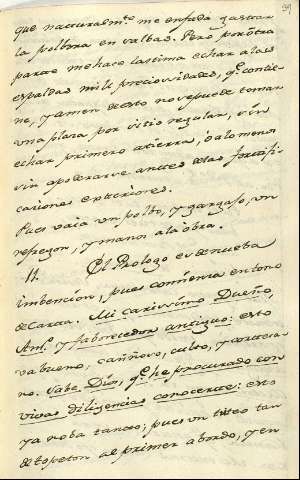 que naturalmte. me enfada gastar
la polbora en salbas. Pero por otra
parte me hace lastima echar a las
espaldas mil preciosidades, qe. contie-
ne, y amen de esto no se puede tomar
una plaza por sitio regular, sin
echar primero a tierra, ó a lo menos
sin apoderarse antes de las fortifi-
caciones exteriores.
Pues vaia un polbo, y gargajo, un
refregon, y manos a la obra.
11. El Prologo es de nueba
imbencion, pues comienza en tono
de Carta. Mi Carissimo Dueño,
Amo. y faborecedor antiguo: esto
va bueno, cariñoso, culto, y cortesa-
no. Sabe Dios, qe. he procurado con
vivas diligencias conocerte: esto
ya no ba tanto; pues un tuteo tan
de topeton al primer abordo, y en